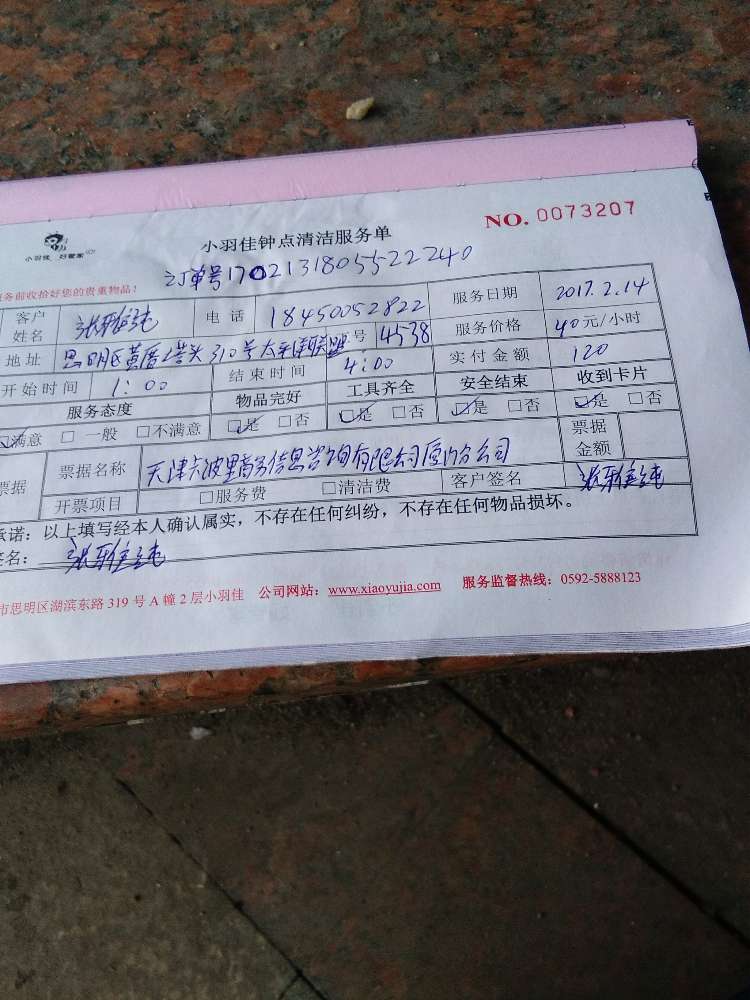 NO. 0073207
小羽佳钟点清洁服务单
小羽佳 好管家
订单号17021318055522240
务前收拾好您的贵重物品!
客户姓名 张雅纯 电话 18450052822 服务日期 2017.2.14
地址 思明区黄厝 310号 号 4538 服务价格 40元/小时
开始时间 1:00 结束时间 4:00 实付金额 120
服务态度 物品完好 工具齐全 安全结束 收到卡片
满意 □一般 □不满意 ☑是 □否 ☑是 □否 ☑是 □否 ☑是 □否
票据 票据名称 天津六波里商务信息咨询有限公司厦门分公司 票据金额
开票项目 □服务费 □清洁费 客户签名 张雅纯
承诺:以上填写经本人确认属实,不存在任何纠纷,不存在任何物品损坏。
签名: 张雅纯
市思明区湖滨东路 319 号 A 幢 2 层小羽佳 公司网站:www.xiaoyujia.com 服务监督热线:0592-5888123